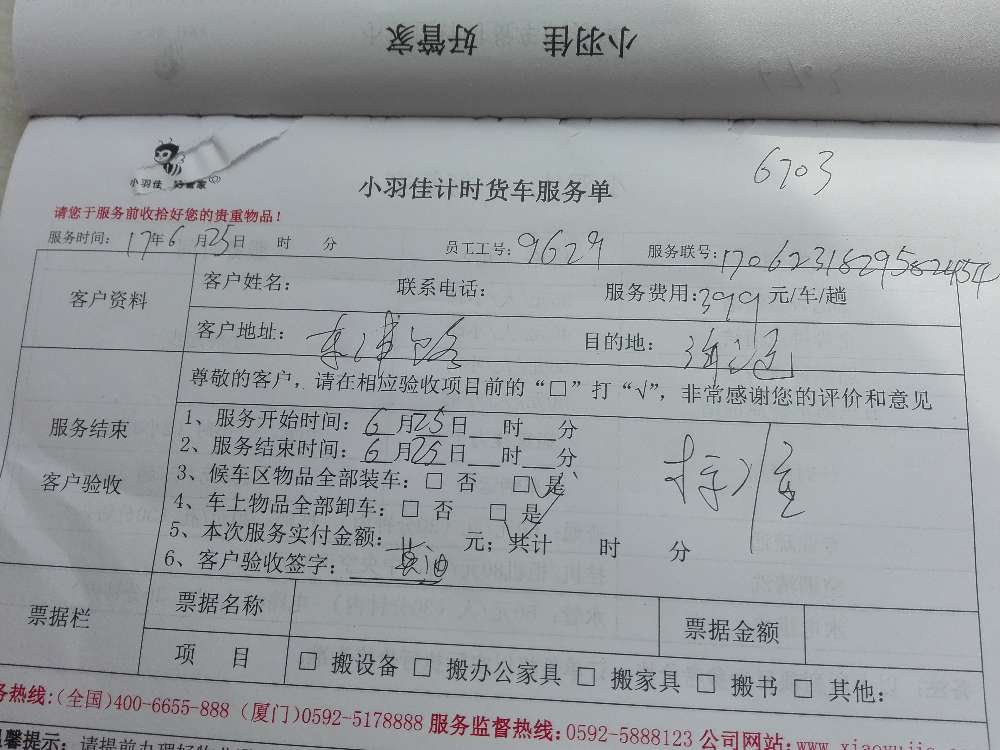 小羽佳 好管家
6703
小羽佳 好管家
小羽佳计时货车服务单
请您于服务前收拾好您的贵重物品!
服务时间: 17年6月25日 时 分 员工工号: 9629 服务联号: 170623182958245
客户资料 客户姓名: 联系电话: 服务费用:399元/车/趟
客户地址: 目的地:
服务结束 客户验收 尊敬的客户,请在相应验收项目前的“□”打“√”,非常感谢您的评价和意见
1、服务开始时间: 6月25日___时___分
2、服务结束时间: 6月25日___时___分
3、候车区物品全部装车: □ 否 □ 是
4、车上物品全部卸车: □ 否 □ 是
5、本次服务实付金额: 元; 共计 时 分
6、客户验收签字:
票据栏 票据名称 票据金额
项 目 □ 搬设备 □ 搬办公家具 □ 搬家具 □ 搬书 □ 其他:
务热线:(全国)400-6655-888 (厦门)0592-5178888 服务监督热线:0592-5888123 公司网站:www.xiaoyujia
温馨提示: 请提前办理好物业